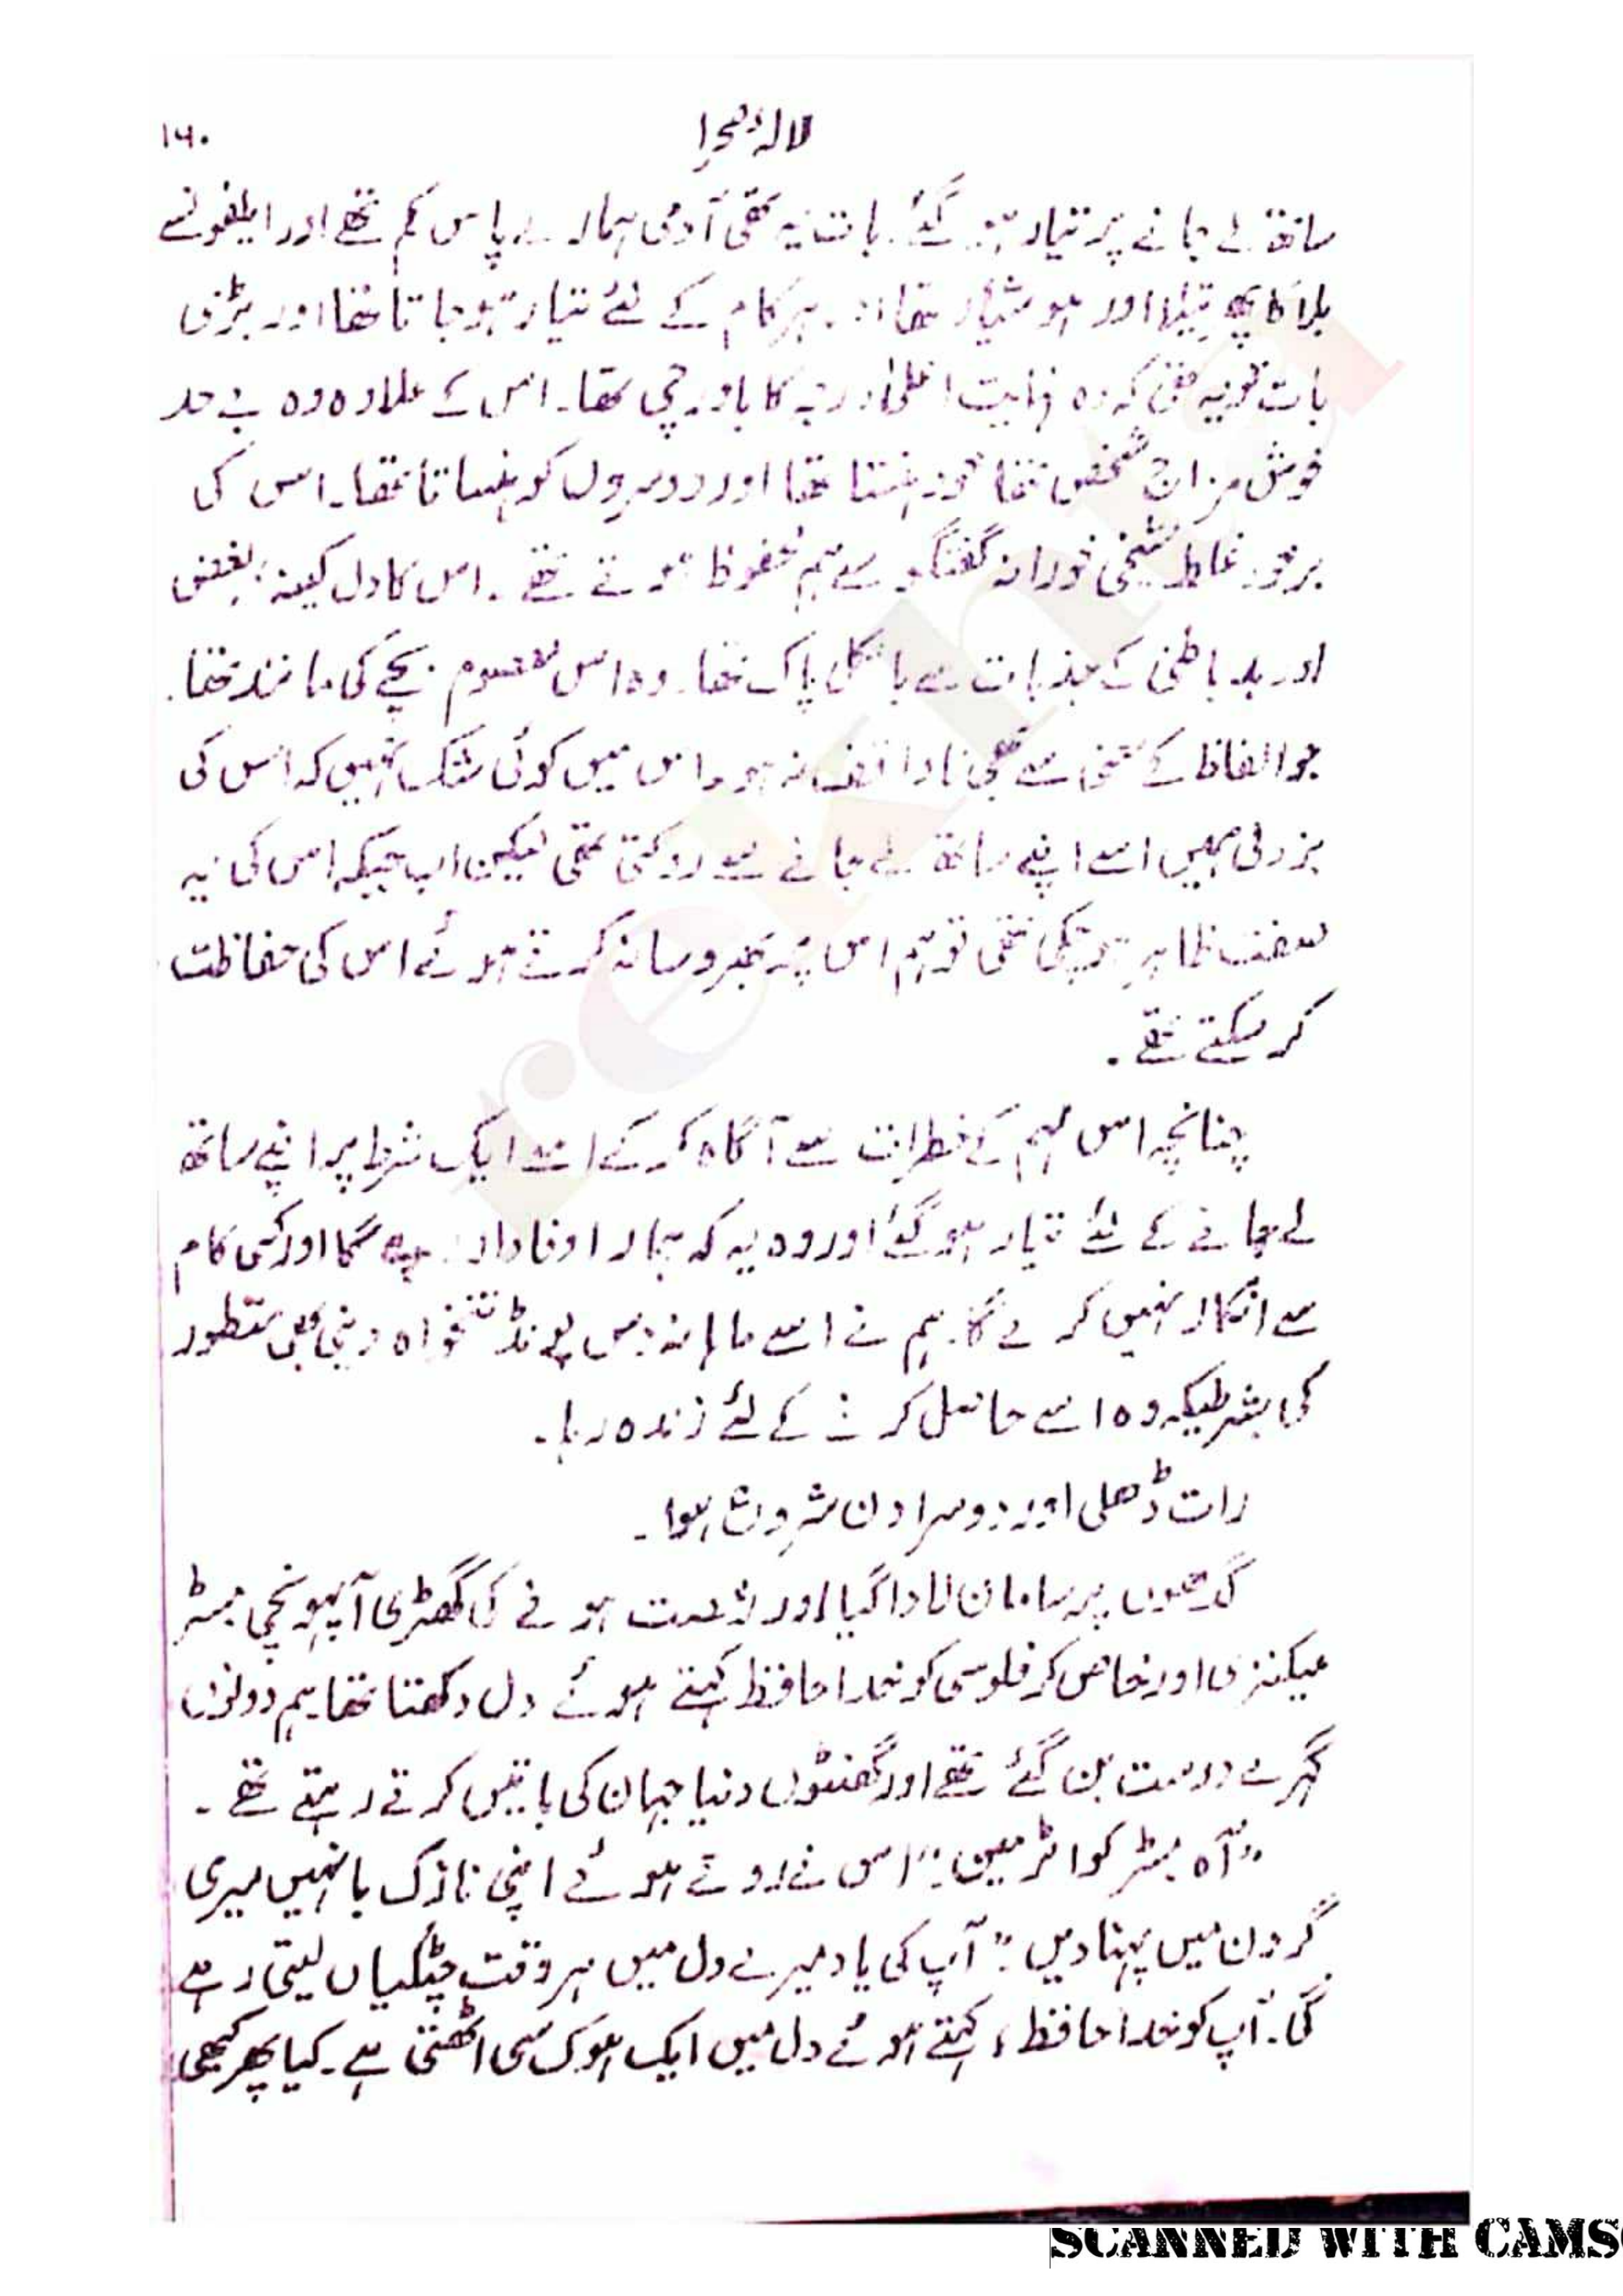 لالۂ صحرا
۱۶۰
ساتھ لے جانے پر تیار ہو گئے۔ بات یہ تھی آدمی ہمارے پاس کم تھے اور ایلفونسے
بلا کا پھرتیلا اور ہوشیار تھا اور ہر کام کے لئے تیار ہو جاتا تھا اور بڑی
بات تو یہ تھی کہ وہ نہایت اعلیٰ درجہ کا باورچی تھا۔ اس کے علاوہ وہ بے حد
خوش مزاج شخص تھا خود ہنستا تھا اور دوسروں کو ہنساتا تھا۔ اس کی
برخود غلط شیخی خورانہ گفتگو سے ہم محفوظ ہوتے تھے۔ اس کا دل کینہ، بغض
اور بد باطنی کے جذبات سے بالکل پاک تھا۔ وہ اس معصوم بچے کی مانند تھا۔
جو الفاظ کے معنی سے بھی ناواقف نہ ہو۔ اس میں کوئی شک نہیں کہ اس کی
بزدلی ہمیں اسے اپنے ساتھ لے جانے سے روکتی تھی لیکن اب جبکہ اس کی یہ
صفت ظاہر ہو چکی تھی تو ہم اس پر بھروسا نہ کرتے ہوئے اس کی حفاظت
کر سکتے تھے۔
چنانچہ اس مہم کے خطرات سے آگاہ کر کے اسے ایک شرط پر اپنے ساتھ
لے جانے کے لئے تیار ہو گئے اور وہ یہ کہ ہمارا وفادار رہے گا اور کسی کام
سے انکار نہیں کرے گا۔ ہم نے اسے ماہانہ دس پونڈ تنخواہ دینی بھی منظور
کی بشرطیکہ وہ اسے حاصل کرنے کے لئے زندہ رہا۔
رات ڈھلی اور دوسرا دن شروع ہوا۔
گدھوں پر سامان لادا گیا اور رخصت ہونے کی گھڑی آپہونچی مسٹر
میکنزی اور خاص کر فلوسی کو خدا حافظ کہتے ہوئے دل دکھتا تھا ہم دونوں
گہرے دوست بن گئے تھے اور گھنٹوں دنیا جہان کی باتیں کرتے رہتے تھے۔
”آہ مسٹر کواٹرمین۔“ اس نے روتے ہوئے اپنی نازک بانہیں میری
گردن میں پہنا دیں۔ ”آپ کی یاد میرے دل میں ہر وقت چٹکیاں لیتی رہے
گی۔ آپ کو خدا حافظ، کہتے ہوئے دل میں ایک ہوک سی اٹھتی ہے۔ کیا پھر کبھی
rekhta
SCANNED WITH CAMS